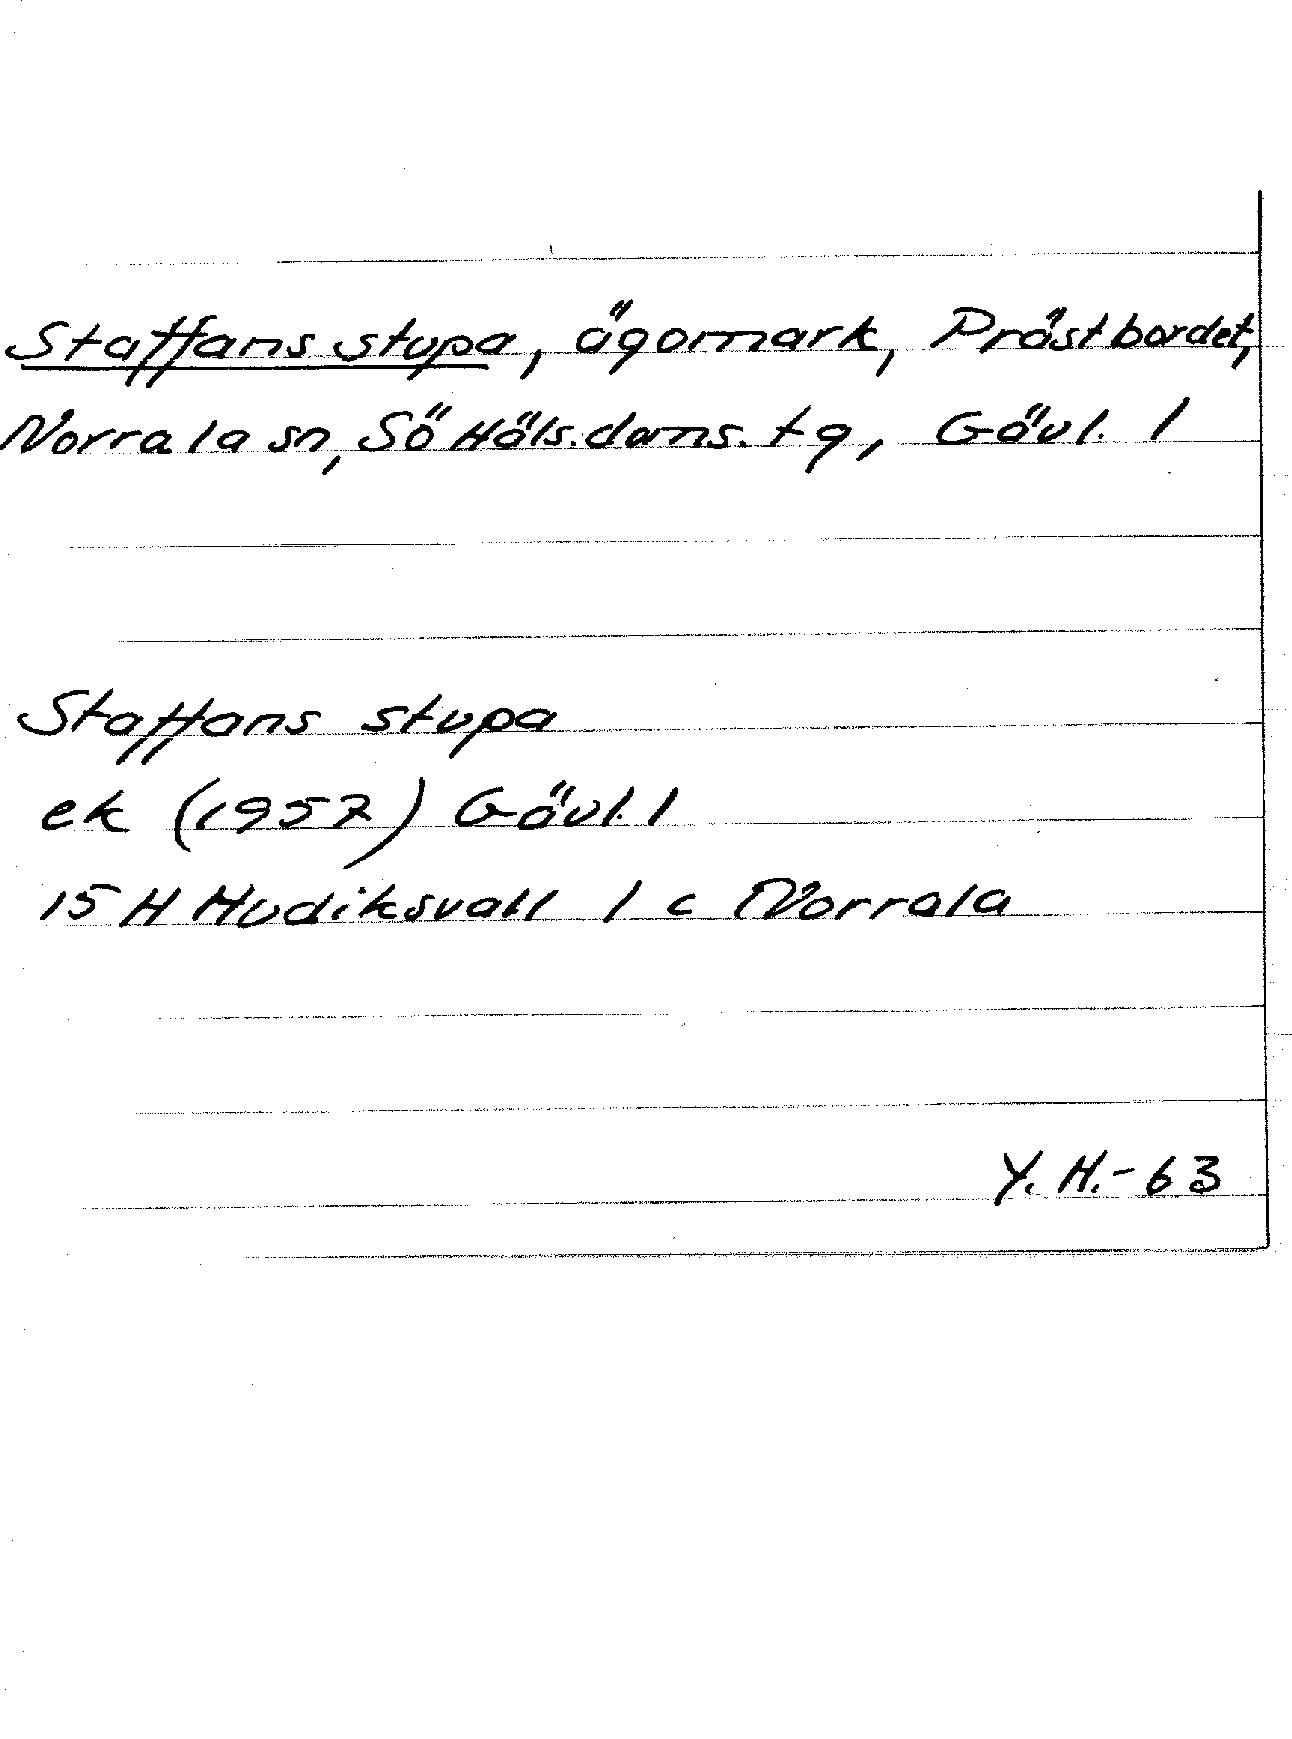 Staffans stupa, ägomark, Prästbordet,
Norrala sn, Sö Häls. doms. tg, Gävl. l
Staffans stupa
ek (1957) Gävl. l
15 H Hudiksvall 1 c Norrala
Y. H. - 63